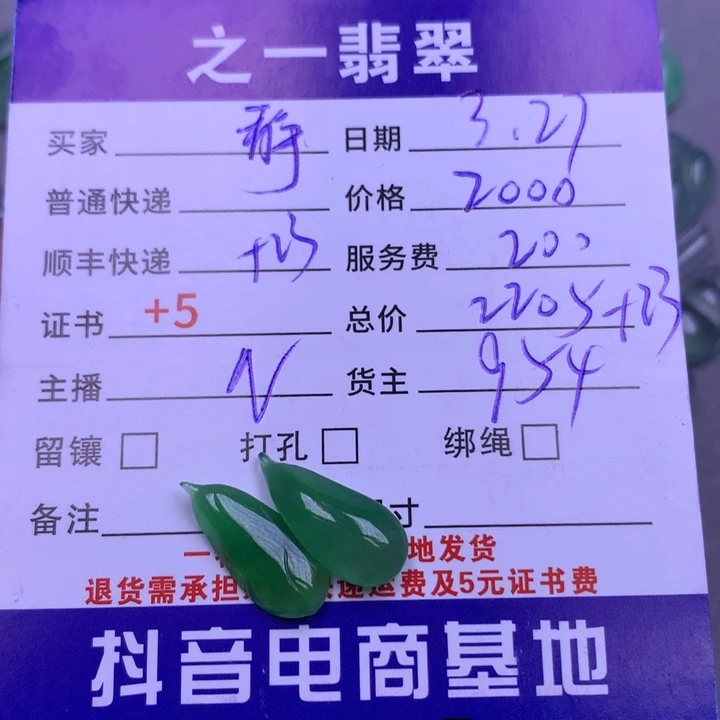 之一翡翠
买家 静 日期 3.27
普通快递 价格 2000
顺丰快递 +23 服务费 200
证书 +5 总价 2205+23
主播 N 货主 954
留镶 □ 打孔 □ 绑绳 □
备注 寸
一 地发货
退货需承担 递运费及5元证书费
抖音电商基地